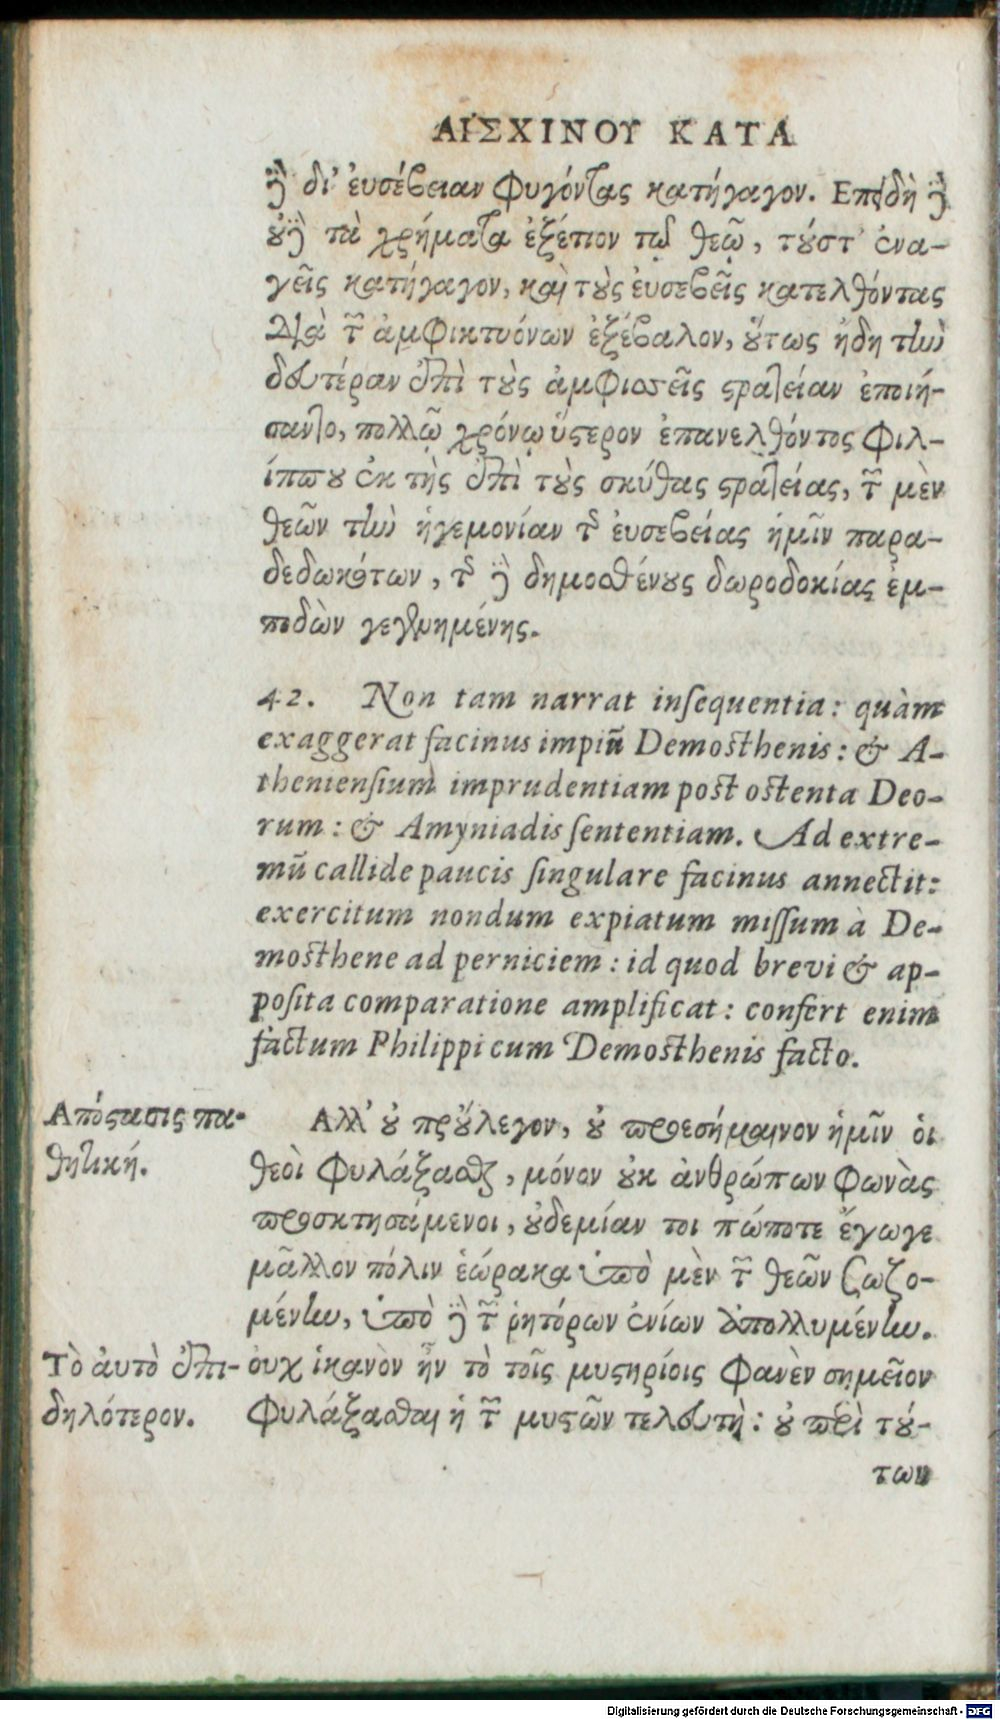 ΑΙΣΧΙΝΟΥ ΚΑΤΑ
δὲ δι' ἐυσέβειαν φυγόντας κατήγαγον. Επειδὴ δὲ
οὔτε τὰ χρήματα ἐξέτιον τῷ θεῷ, τούς τ' ἐνα-
γεῖς κατήγαγον, καὶ τοὺς ἐυσεβεῖς κατελθόντας
διὰ τῶν ἀμφικτυόνων ἐξέβαλον, οὕτως ἤδη τὴν
δευτέραν ἐπὶ τοὺς ἀμφισσεῖς στρατείαν ἐποιή-
σαντο, πολλῷ χρόνῳ ὕστερον ἐπανελθόντος Φιλ-
ίππου ἐκ τῆς ἐπὶ τοὺς σκύθας στρατείας, τῶν μὲν
θεῶν τὴν ἡγεμονίαν τῆς ἐυσεβείας ἡμῖν παρα-
δεδωκότων, τῆς δὲ δημοσθένους δωροδοκίας ἐμ-
ποδὼν γεγενημένης.
42. Non tam narrat insequentia: quàm
exaggerat facinus impiũ Demosthenis: & A-
theniensium imprudentiam post ostenta Deo-
rum: & Amyniadis sententiam. Ad extre-
mũ callide paucis singulare facinus annectit:
exercitum nondum expiatum missum à De-
mosthene ad perniciem: id quod brevi & ap-
posita comparatione amplificat: confert enim
factum Philippi cum Demosthenis facto.
Απόστασις πα-
θητική.
Αλλ' οὐ προύλεγον, οὐ προεσήμαινον ἡμῖν οἱ
θεοὶ φυλάξασθαι, μόνον οὐκ ἀνθρώπων φωνὰς
προσκτησάμενοι, οὐδεμίαν τοι πώποτε ἔγωγε
μᾶλλον πόλιν ἑώρακα ὑπὸ μὲν τῶν θεῶν σωζο-
μένην, ὑπὸ δὲ τῶν ῥητόρων ἐνίων ἀπολλυμένην.
Τὸ ἀυτὸ ἐπι-
δηλότερον.
οὐχ ἱκανὸν ἦν τὸ τοῖς μυστηρίοις φανὲν σημεῖον
φυλάξασθαι ἡ τῶν μυστῶν τελευτὴ: οὐ περὶ τού-
των
Digitalisierung gefördert durch die Deutsche Forschungsgemeinschaft - DFG